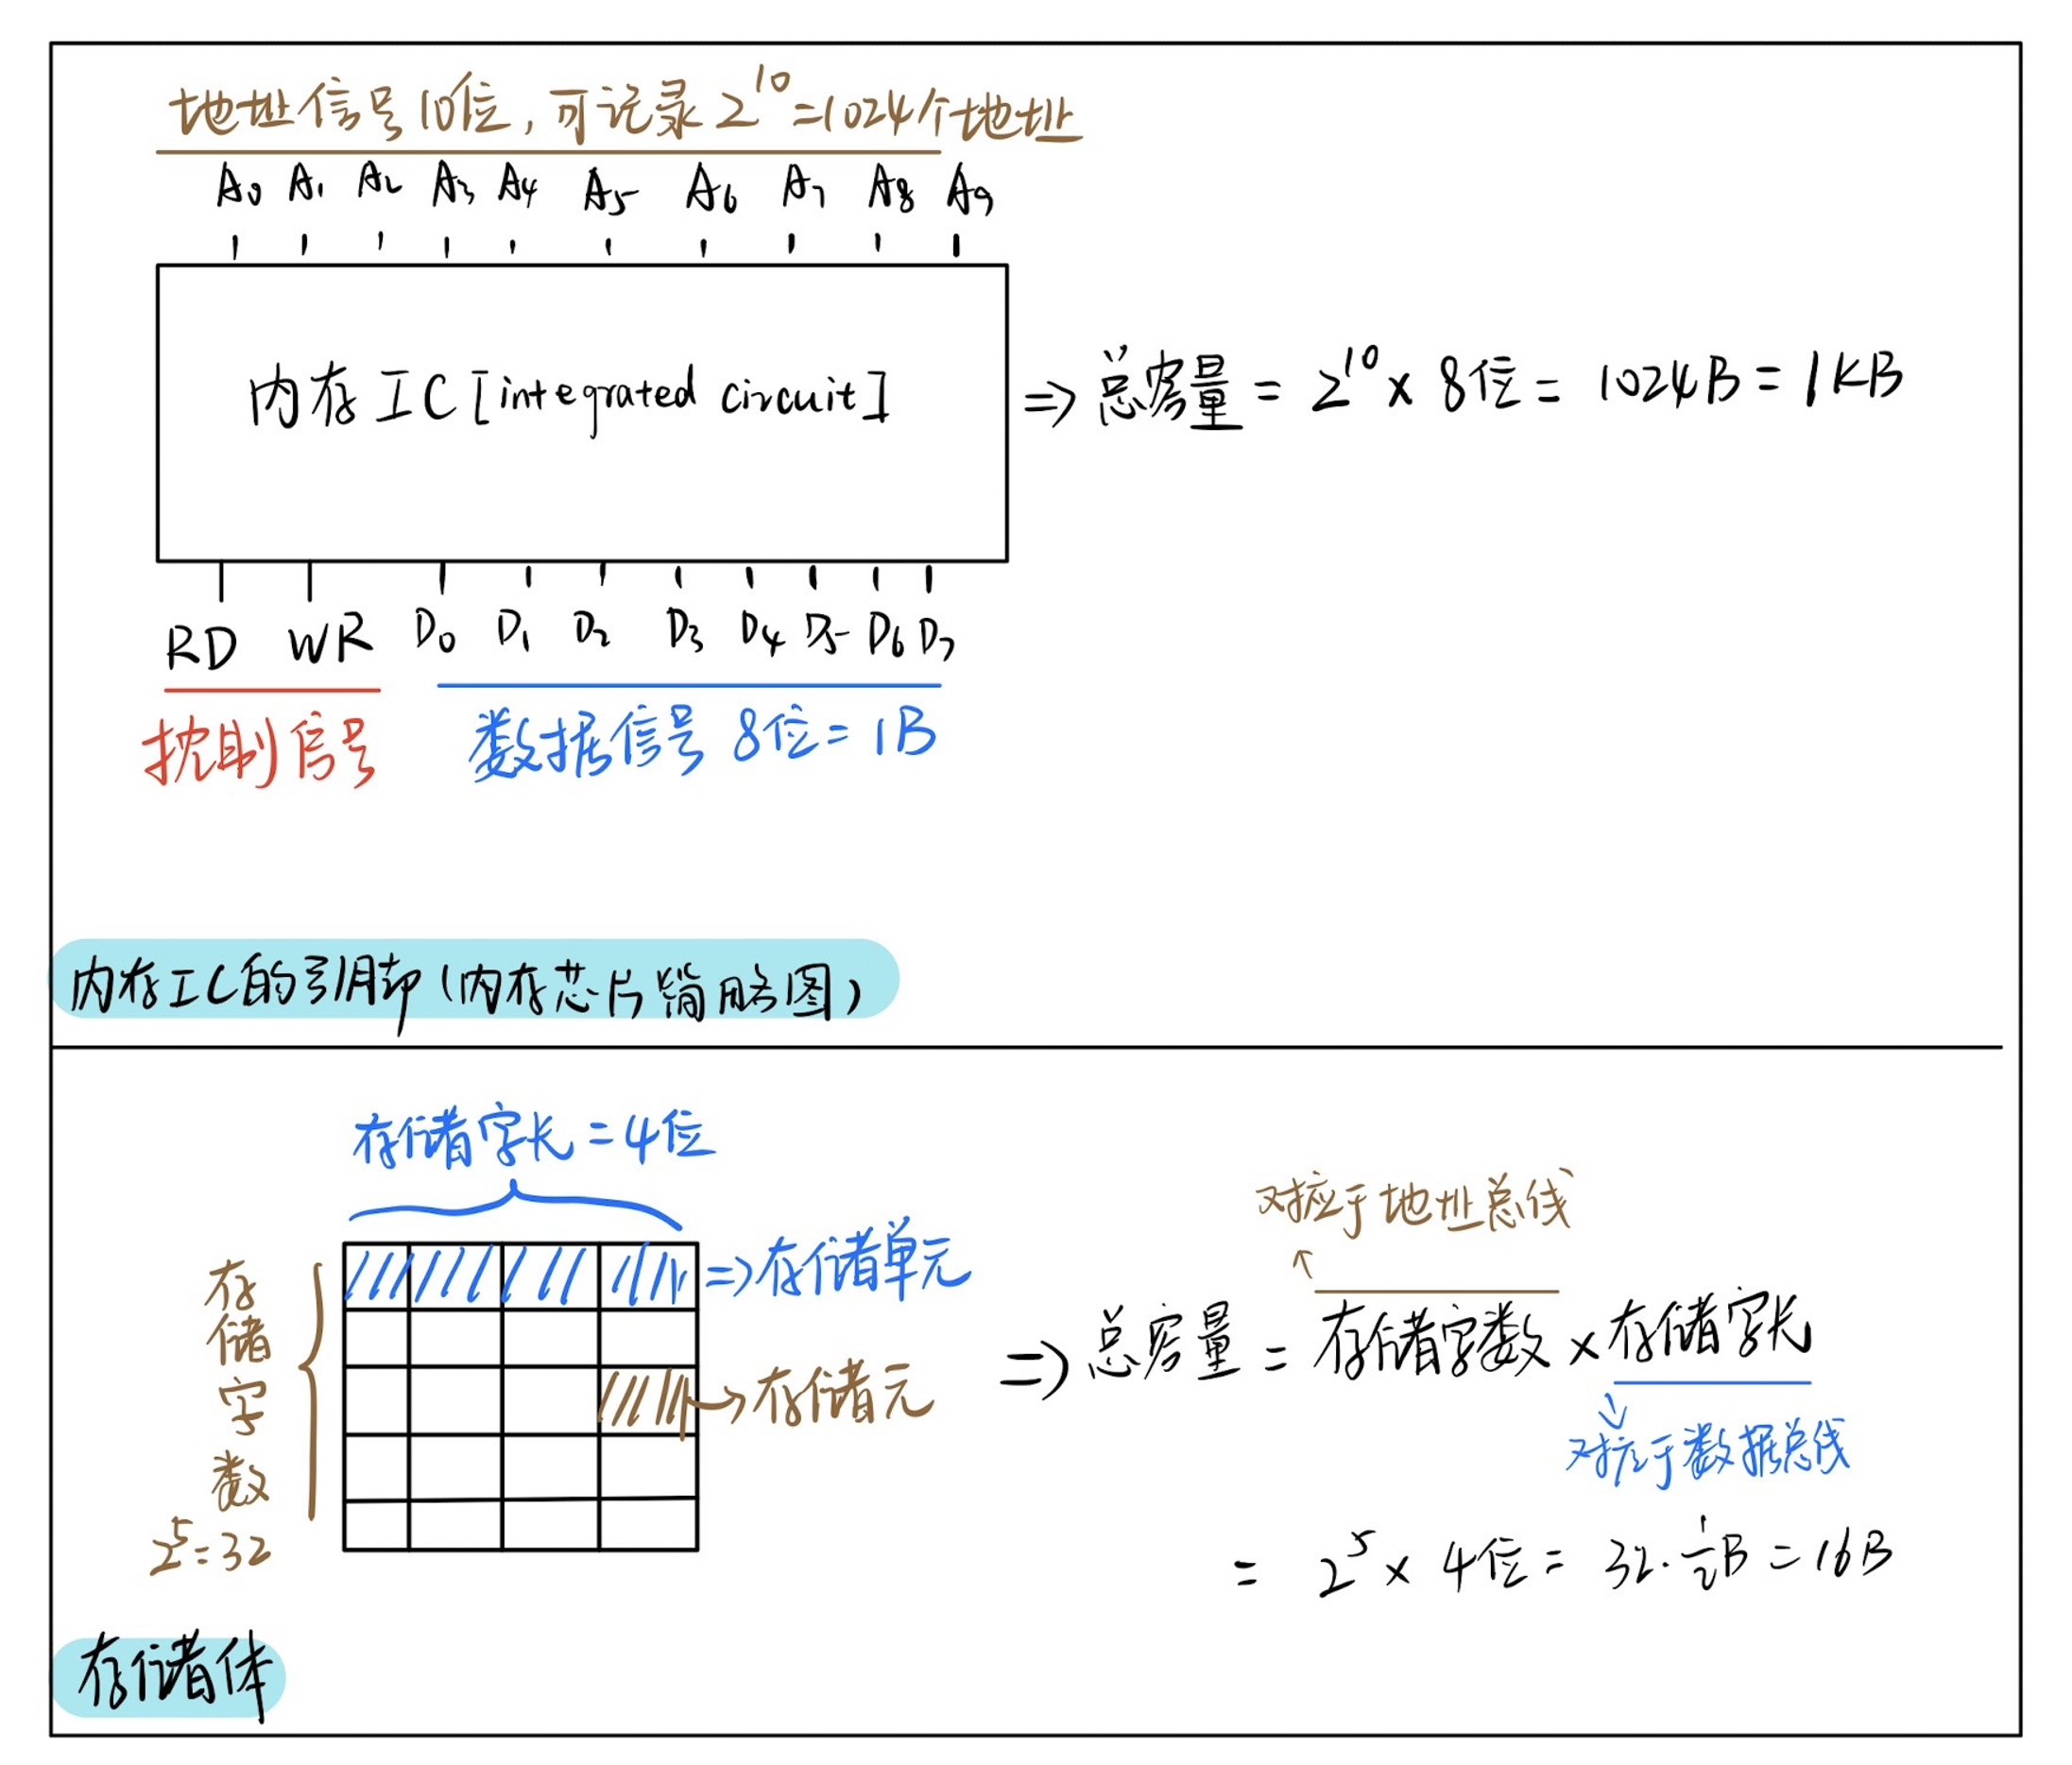 地址信号10位,可记录2^10=1024个地址
A0 A1 A2 A3 A4 A5 A6 A7 A8 A9
内存IC[integrated circuit]
⇒总容量=2^10×8位=1024B=1KB
RD WR D0 D1 D2 D3 D4 D5 D6 D7
控制信号
数据信号 8位=1B
内存IC的引脚(内存芯片简略图)
存储字长=4位
⇒存储单元
→存储元
存储字数
2^5=32
对应于地址总线
⇒总容量=存储字数×存储字长
对应于数据总线
=2^5×4位=32·1/2B=16B
存储体